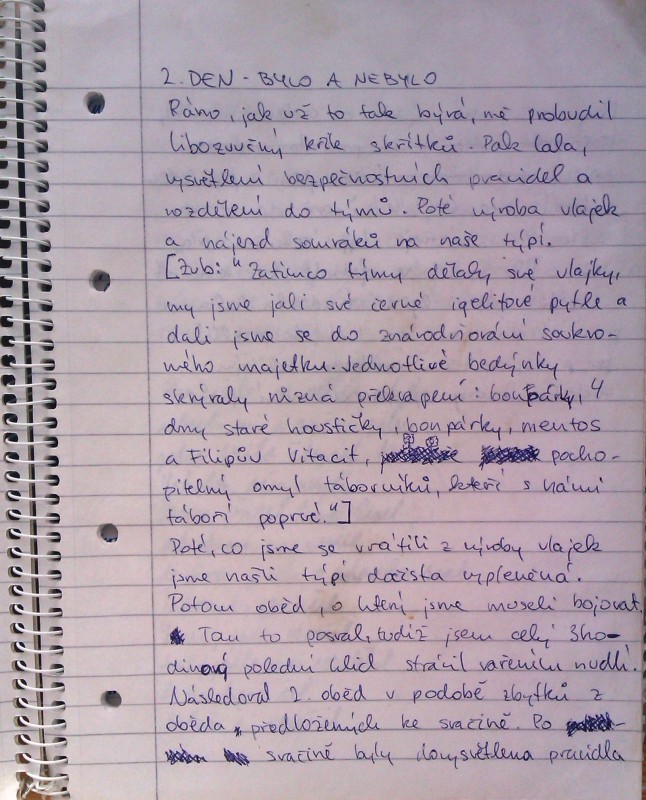 2. DEN - BYLO A NEBYLO
Ráno, jak už to tak bývá, mě probudil
libozvučný křik skřítků. Pak lala,
vysvětlení bezpečnostních pravidel a
rozdělení do týmů. Poté výroba vlajek
a nájezd somráků na naše týpí.
[Zub: "Zatímco týmy dělaly své vlajky,
my jsme jali své černé igelitové pytle a
dali jsme se do znárodňování soukro-
mého majetku. Jednotlivé bedýnky
skrývaly různá překvapení: bonpárky, 4
dny staré houstičky, bonpárky, mentos
a Filipův Vitacit, pocho-
pitelný omyl táborníků, kteří s námi
táboří poprvé."]
Poté, co jsme se vrátili z výroby vlajek
jsme našli týpí dočista vypleněná.
Potom oběd, o který jsme museli bojovat.
Tam to posral, tudíž jsem celý 3ho-
dinový polední klid strávil vařením nudlí.
Následoval 2. oběd v podobě zbytků z
oběda předložených ke svačině. Po
svačině byly dovysvětlena pravidla